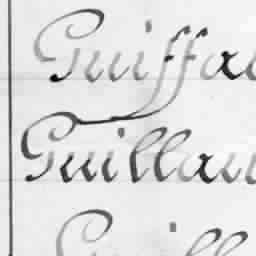 Guiffa
Guillau
Guill